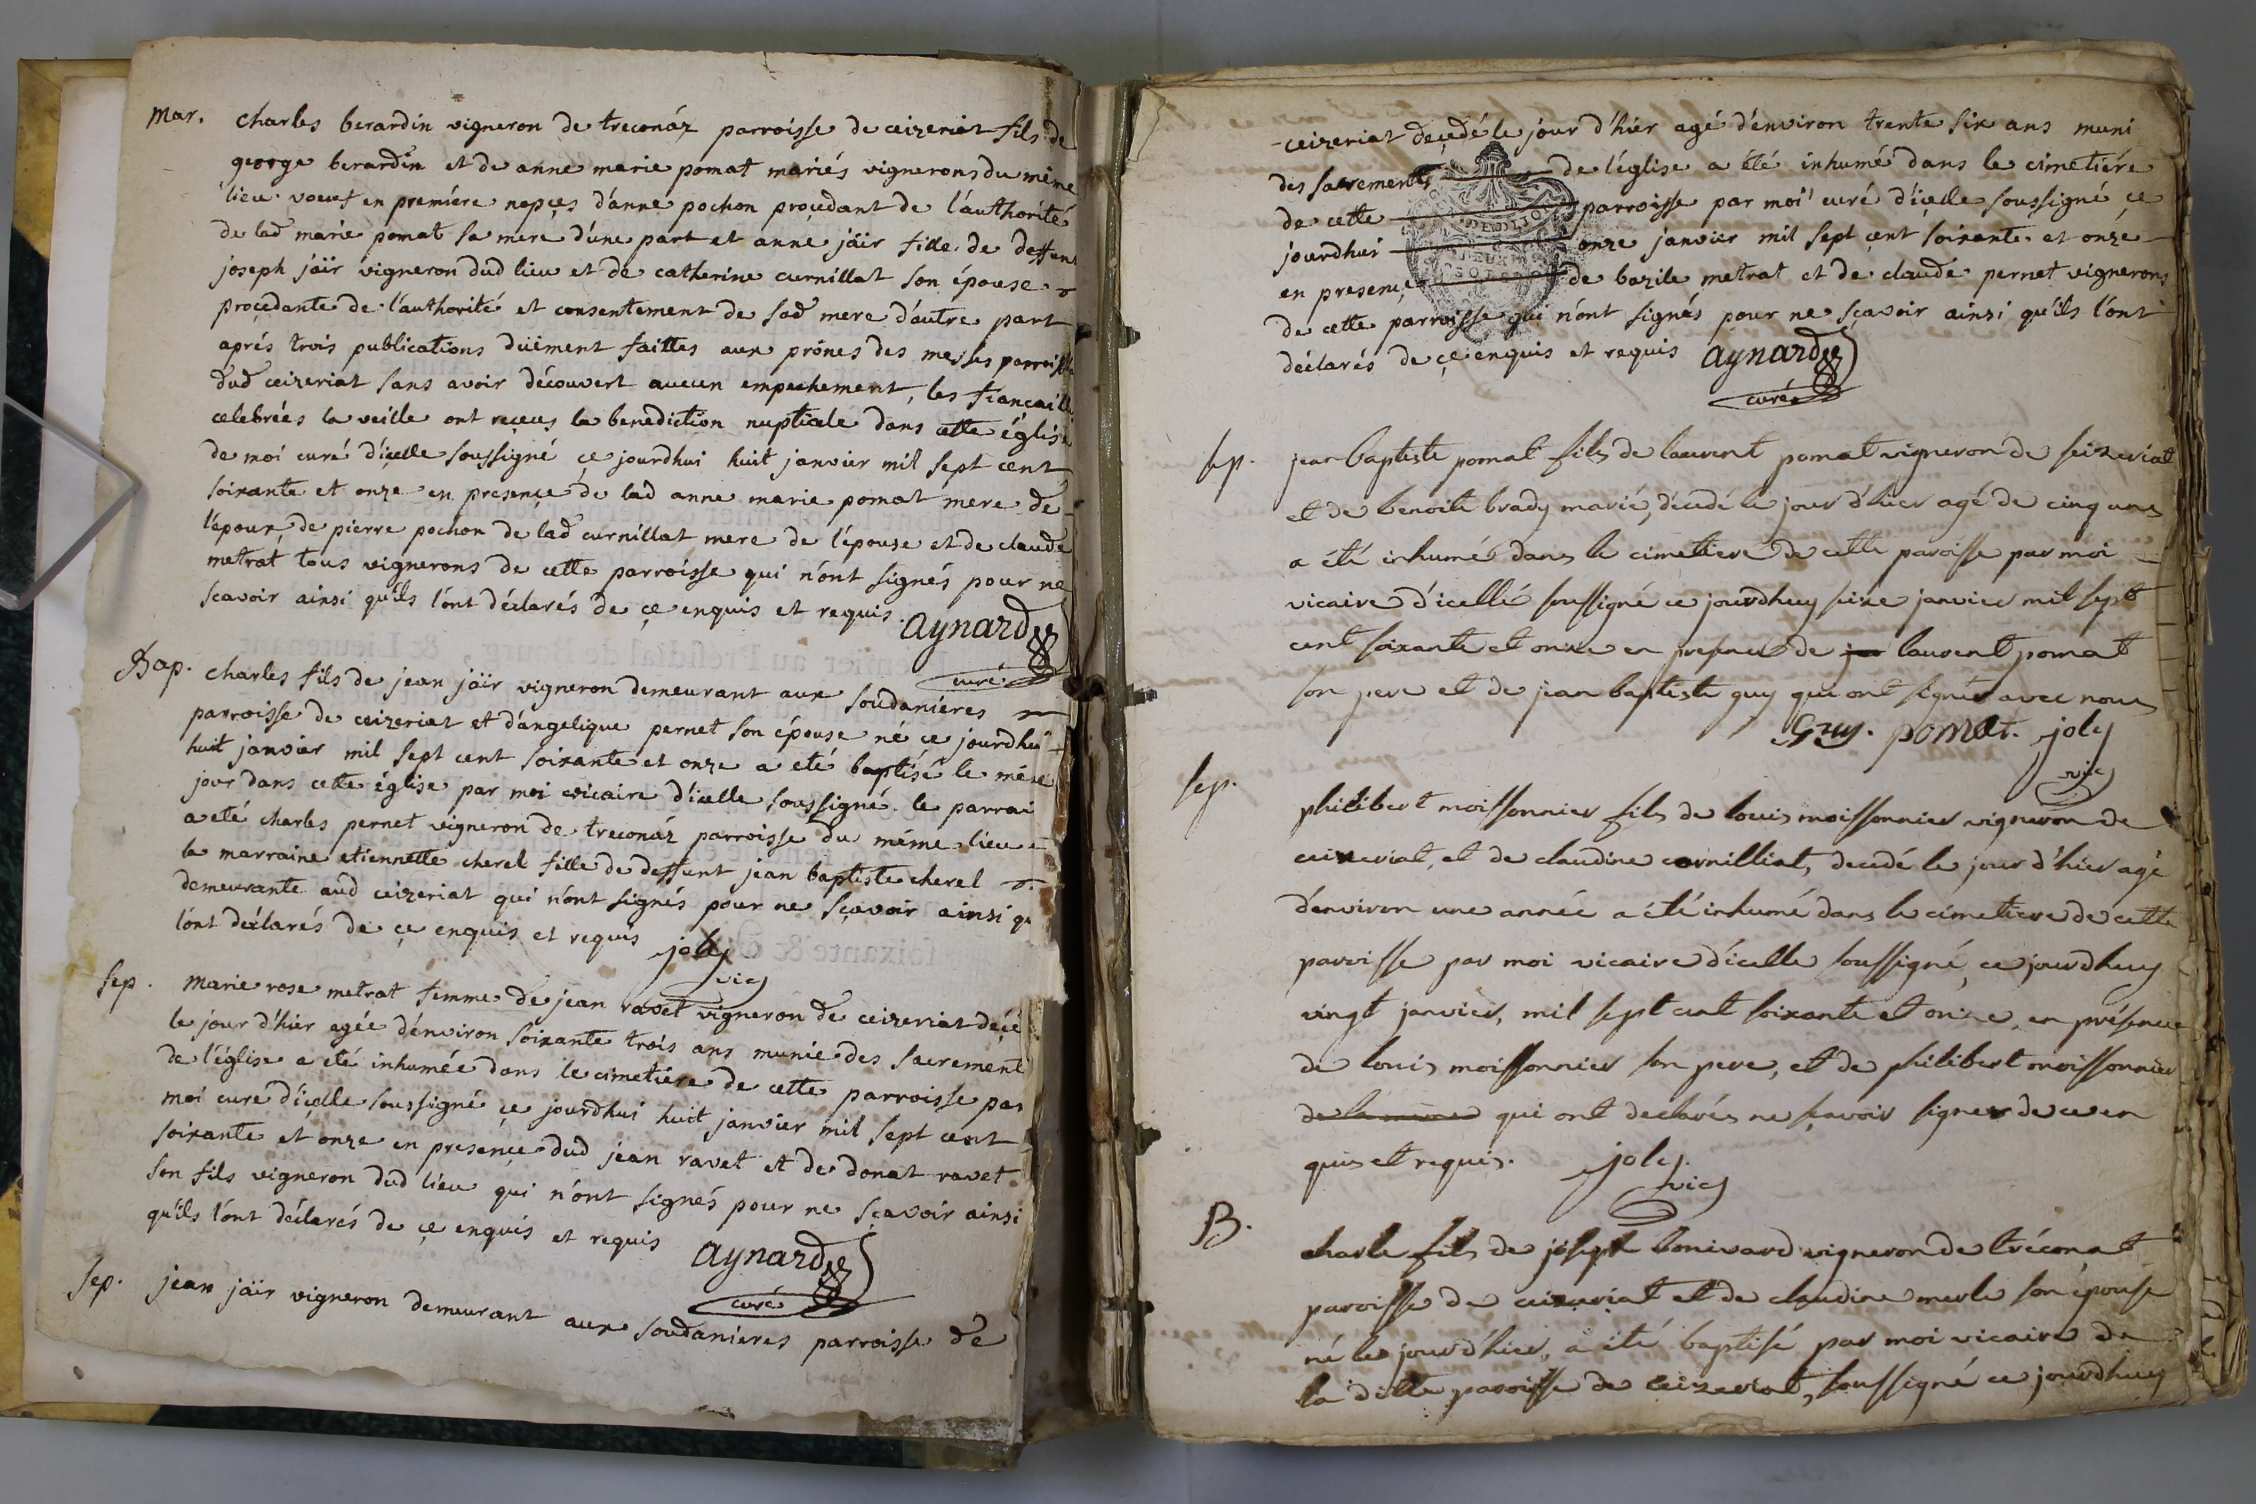 mar. charles berardin vigneron de treconáz parroisse de ceizeriat fils de
george berardin et de anne marie pomat mariés vignerons du même
lieu voeuf en premiére nopçes d'anne pochon proçedant de l'authorité
de lad marie pomat sa mere d'une part et anne jäir fille de deffunt
joseph jäir vigneron dud lieu et de catherine curnillat son épouse
proçedante de l'authorité et consentement de sad mere d'autre part
aprés trois publications düiment faittes aux prônes des messes parroiss
dud ceizeriat sans avoir découvert aucun empechement, les fiançaill
celebrées la veille ont reçeus la benediction nuptiale dans cette église
de moi curé d'içelle soussigné çe jourdhui huit janvier mil sept cent
soixante et onze en presençe de lad anne marie pomat mere de
l'époux, de pierre pochon de lad curnillat mere de l'épouse et de claude
metrat tous vignerons de cette parroisse qui n'ont signés pour ne
scavoir ainsi qu'ils l'ont déclarés de çe enquis et requis. aynard
curé
Bap. charles fils de jean jäir vigneron demeurant aux soudaniéres
parroisse de ceizeriat et d'angelique pernet son épouse né ce jourdhui
huit janvier mil sept cent soixante et onze a eté baptisé le même
jour dans cette église par moi vicaire d'icelle soussigné. le parrai
a eté charles pernet vigneron de treconáz parroisse du même lieu
la marraine etiennette cherel fille de deffunt jean baptiste cherel
demeurante aud ceizeriat qui n'ont signés pour ne sçavoir ainsi qu
l'ont déclarés de çe enquis et requis joly
vic
sep. marie rose metrat femme de jean ravet vigneron de ceizeriat déçé
le jour d'hier agée d'environ soixante trois ans munie des sacrement
de l'église a eté inhumée dans le cimetiére de cette parroisse par
moi curé d'içelle soussigné çe jourdhui huit janvier mil sept cent
soixante et onze en presençe dud jean ravet et de donat ravet
son fils vigneron dud lieu qui n'ont signés pour ne sçavoir ainsi
qu'ils l'ont déclarés de çe enquis et requis aynard
curé
sep. jean jäir vigneron demeurant aux soudaniéres parroisse de
ceizeriat deçedé le jour d'hier agé d'environ trente six ans muni
des sacrements de l'église a été inhumé dans le cimetiére
de cette parroisse par moi curé d'içelle soussigné çe
jourdhui onze janvier mil sept çent soixante et onze
en presençe de bazile metrat et de claude pernet vignerons
de cette parroisse qui n'ont signés pour ne sçavoir ainsi qu'ils l'ont
déclarés de çe enquis et requis aynard
curé
sep. jean baptiste pomat fils de laurent pomat vigneron de seizeriat
et de benoite brady marié, décedé le jour d'hier agé de cinq ans
a été inhumé dans le cimetiere de cette paroisse par moi
vicaire d'icelle soussigné ce jourdhuy seize janvier mil sept
cent soixante et onze en presence de laurent pomat
son pere et de jean baptiste guy qui ont signés avec nous
Guy. pomat. joly
vic
sep. philibert moissonnier fils de louis moissonnier vigneron de
ceizeriat, et de claudine cornilliat, decedé le jour d'hier agé
d'environ une année a été inhumé dans le cimetiere de cette
paroisse par moi vicaire d'icelle soussigné, ce jourdhuy
vingt janvier, mil sept cent soixante et onze, en présence
de louis moissonnier son pere, et de philibert moissonnier
qui ont declarés ne sçavoir signer de ce en
quis et requis. joly
vic
B. charle fils de joseph bonivard vigneron de tréconat
paroisse de ceizeriat et de claudine merle son épouse
né le jour d'hier, a été baptisé par moi vicaire de
la ditte paroisse de ceizeriat, soussigné ce jourdhuy